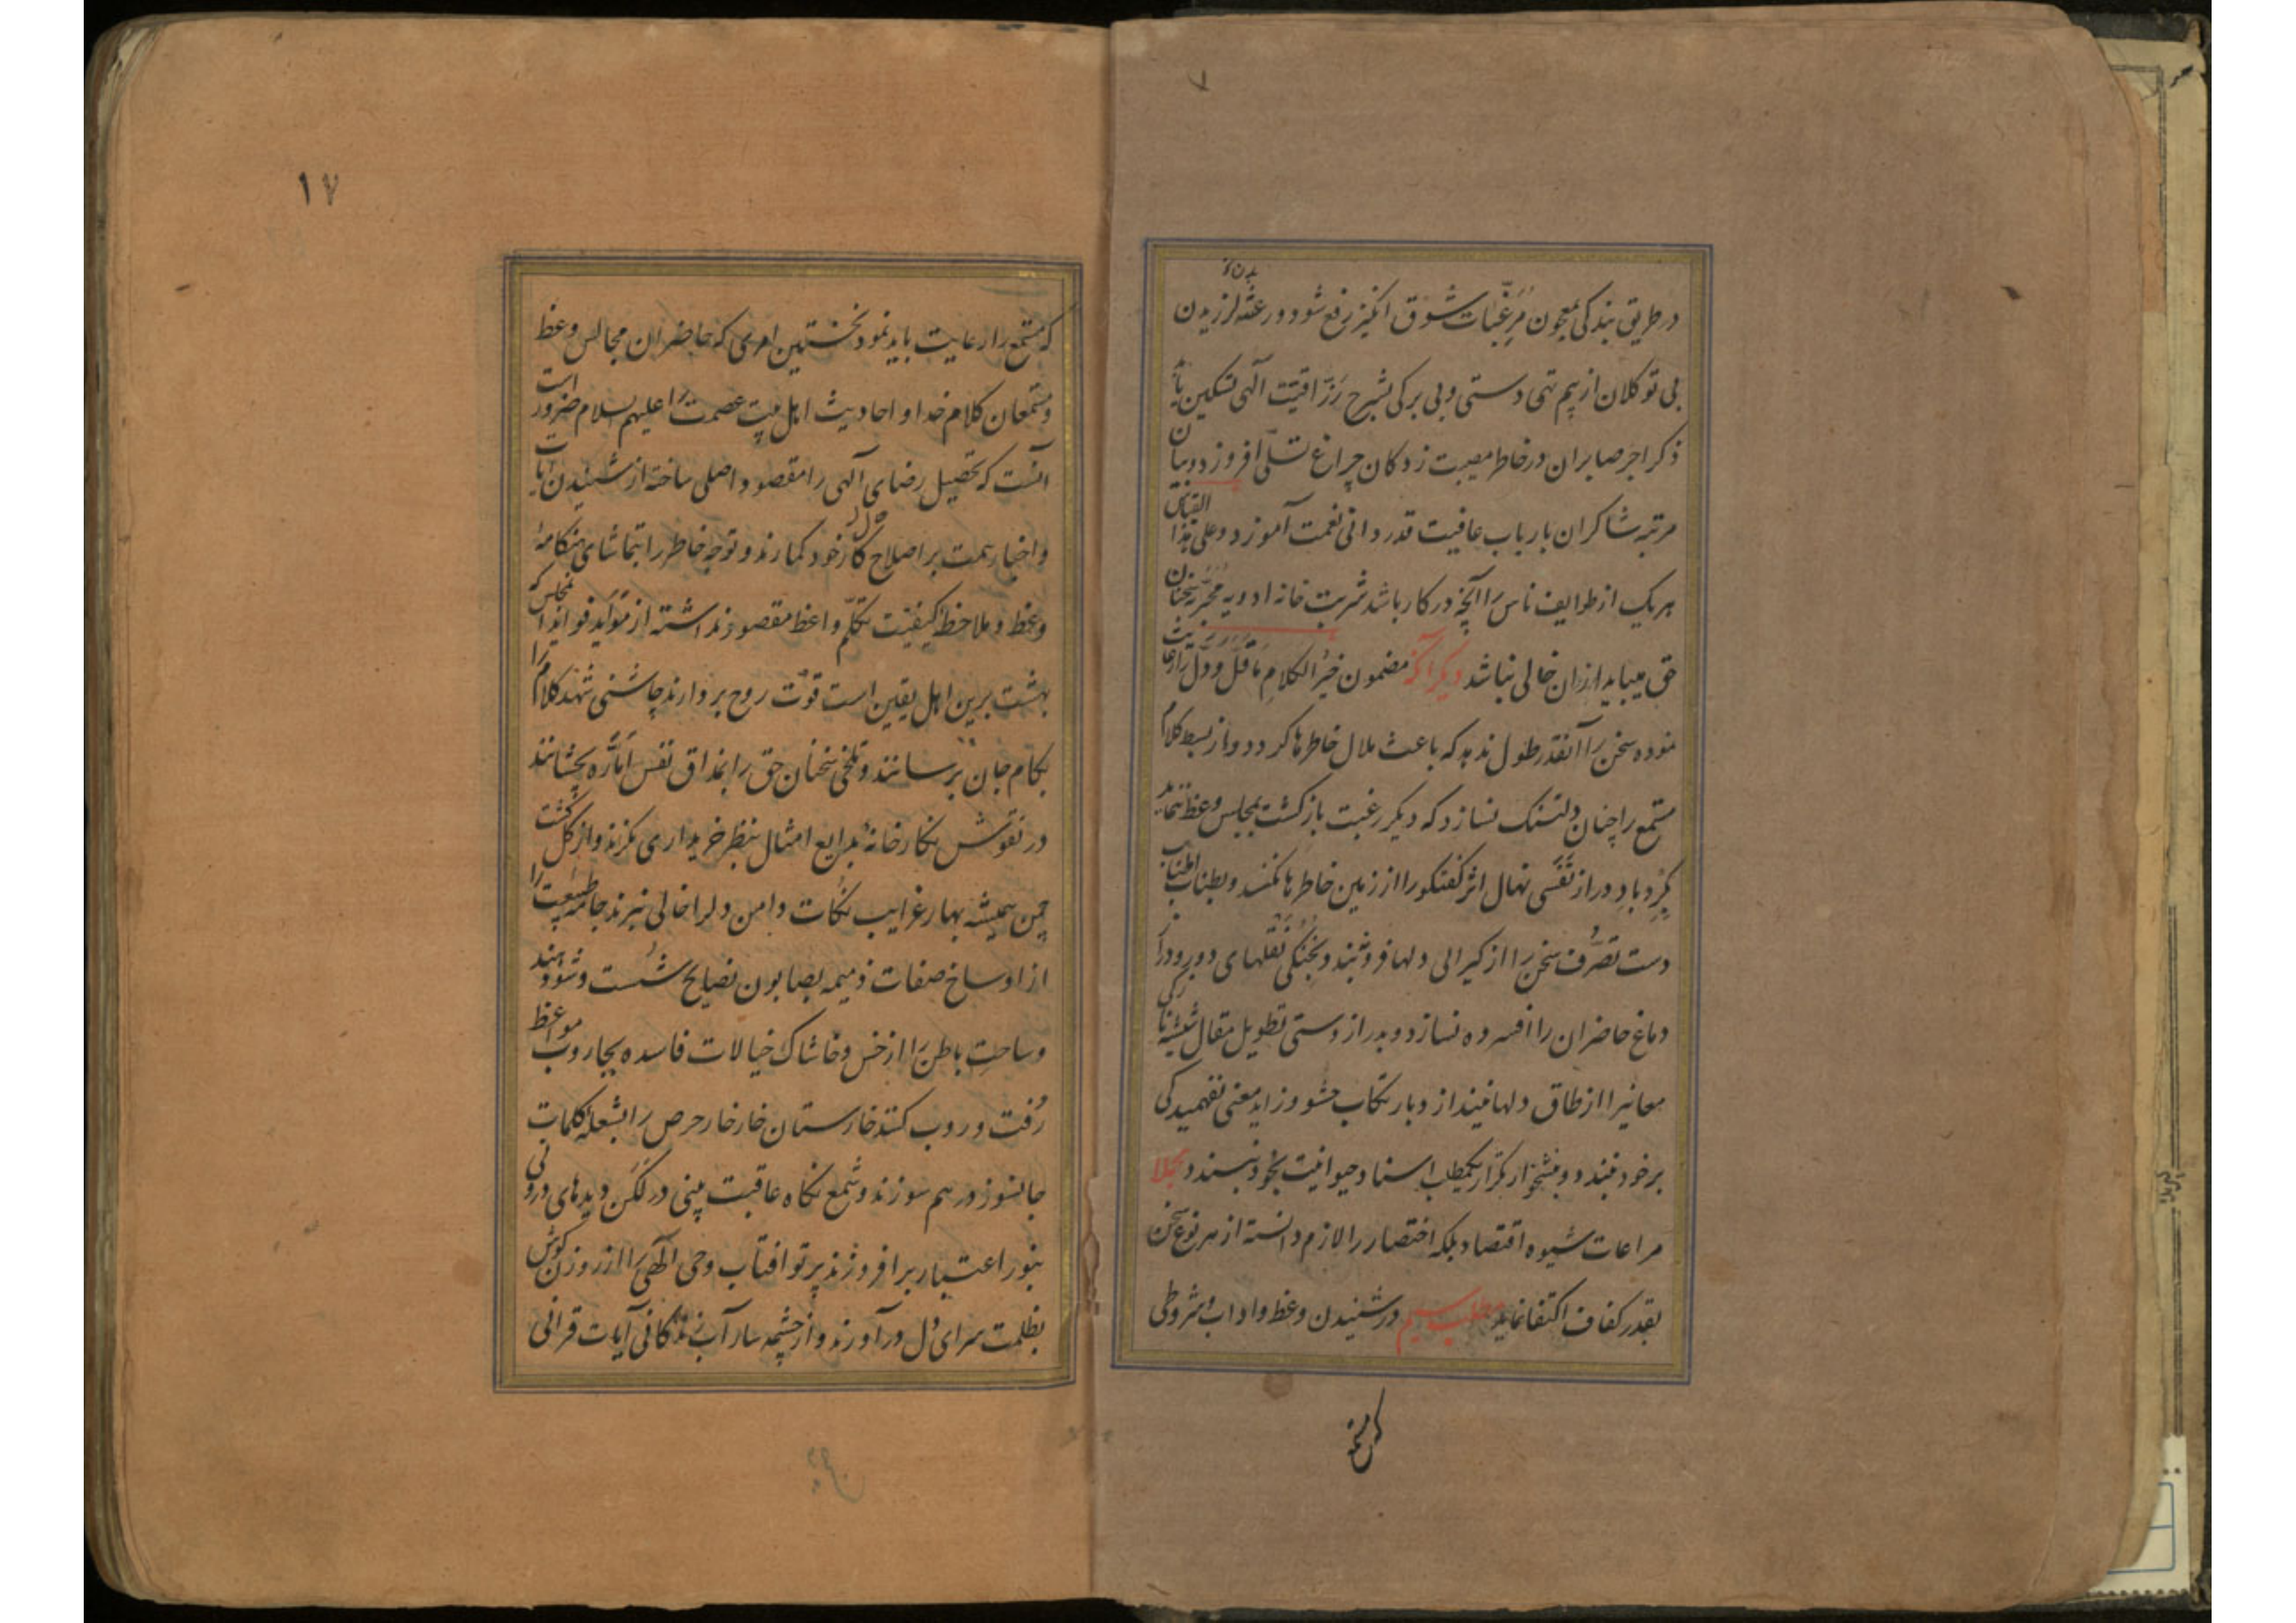 در طریق بندگی بمعجون مرغّبات شوق انگیز رفع شود و رعشه لرزیدن
بی توکلان از بیم تهی دستی و بی برکی بشرح رزّاقیّت آلهی تسکین
ذکر اجر صابران در خاطر مصیبت زدکان چراغ تسلّی افروزد و بیان
مرتبه شاکران بارباب عافیت قدر دانی نعمت آموزد و علی هذا القیاس
هر یک از طوایف ناس را آنچه در کار باشد شربت خانه ادویه مجرّبه سخنان
حق میباید از ان خالی نباشد دیکر آنکه مضمون خیر الکلام ما قلّ و دلّ را رعایت
نموده سخن را آنقدر طول ندهد که باعث ملال خاطرها کردد و از بسط کلام
مستمع را چنان دلتنک نسازد که دیکر رغبت بازکشت بمجلس وعظ ننماید
بکرد باد دراز نفسی نهال اثر کفتکو را از زمین خاطرها نکند و بطناب اطناب
دست تصرّف سخن را از کیرائی دلها فرو نبندد و بخنکی نقلهای دور و دراز
دماغ حاضران را افسرده نسازد و بدراز دستی تطویل مقال شیشه نازکی
معانیرا از طاق دلها نیندازد و بارتکاب حشو و زاید معنی نفهمیدکی
بر خود نبندد و بنشخوار تکرار یکمطلب اسناد حیوانیت بخود نپسندد و مجملا
مراعات شیوه اقتصاد بلکه اختصار را لازم دانسته از هر نوع سخن
بقدر کفاف اکتفا نماید مطلب سیم در شنیدن وعظ و اداب و شروطی
که مستمع
۱۷
که مستمع را رعایت باید نمود نخستین امری که حاضران مجالس وعظ
و مستمعان کلام خدا و احادیث اهل بیت عصمت را علیهم السلام ضرور است
آنست که تحصیل رضای آلهی را مقصود اصلی ساخته از شنیدن آیات
و اخبار همت بر اصلاح کار خود کمارند و توجه خاطر را بتماشای هنکامهٔ
وعظ و ملاحظه کیفیّت تکلّم واعظ مقصور نداشته از موآید فواید آنمجلس که
بهشت برین اهل یقین است قوّت روح بردارند چاشنی شهد کلام را
بکام جان برسانند و تلخی سخنان حق را بمذاق نفس امّاره بچشانند
در نقوش نکارخانهٔ بدایع امثال بنظر خریداری نکرند و از کل کشت
چمن همیشه بهار غرایب نکات دامن دلرا خالی نبرند جامه طبیعت را
از اوساخ صفات ذمیمه بصابون نصایح شست و شو دهند
و ساحت باطن را از خس و خاشاک خیالات فاسده بجاروب مواعظ
رُفت و روب کنند خارستان خارخار حرص را بشعله کلمات
جانسوز درهم سوزند و شمع نکاه عاقبت بینی در لکن دیدهای درونی
بنور اعتبار برافروزند پرتو افتاب وحی الهی را از روزن کوش
بظلمت سرای دل درآورند و از چشمه سار آب زندکانی آیات قرانی